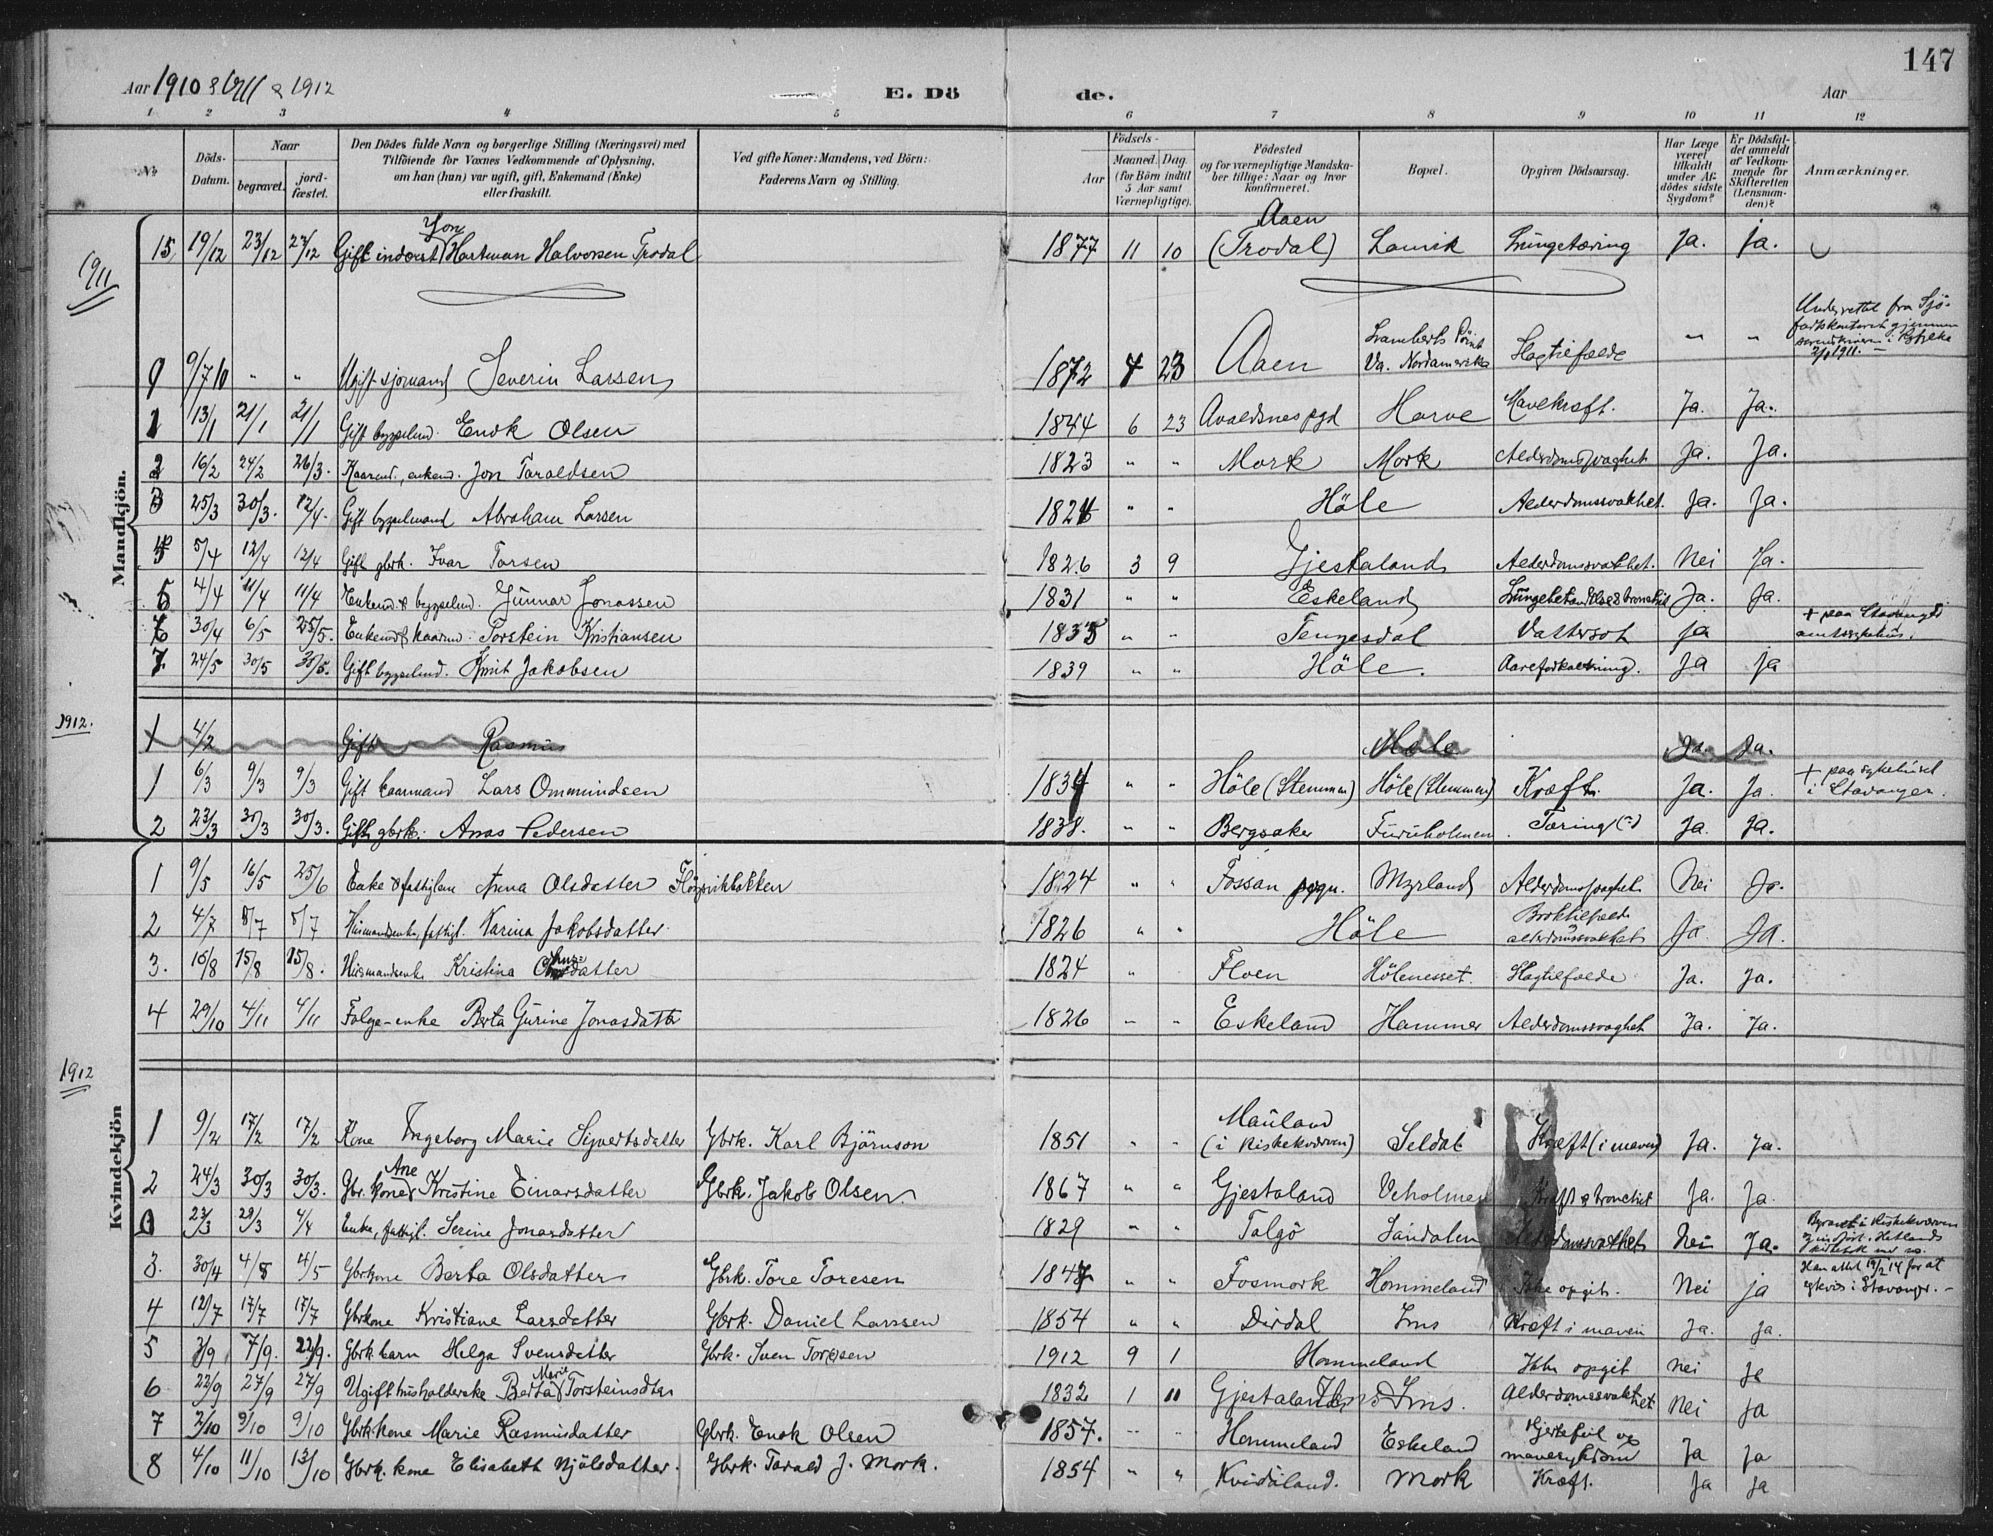 147
Aar 1910 & 1911 & 1912
E. Dö de.
Aar
1 2 3 4 5 6 7 8 9 10 11 12
No
Döds-Datum.
Naar
begravet.
jord-fæstet.
Den Dödes fulde Navn og borgerlige Stilling (Næringsvei) med
Tilföiende for Voxnes Vedkommende af Oplysning,
om han (hun) var ugift, gift, Enkemand (Enke)
eller fraskilt.
Ved gifte Koner: Mandens, ved Börn:
Faderens Navn og Stilling.
Födsels-
Aar
Maaned. Dag.
(for Börn indtil
5 Aar samt
Værnepligtige).
Födested
og for værnepligtige Mandska-
ber tillige: Naar og hvor
konfirmeret.
Bopæl.
Opgiven Dödsaarsag.
Har Læge
været
tilkaldt
under Af-
dödes sidste
Sygdom?
Er Dödsfal-
det anmeldt
af Vedkom-
mende for
Skifteretten
(Lensman-
den)?
Anmærkninger.
1911
Mandkjön.
15 19/12 23/12 23/12 Gift inderst Jon Hartman Halvorsen Trodal 1877 11 10 Aaen (Trodal) Lauvik Lungetæring Ja. Ja.
9 9/7 10 " " Ugift sjömand Severin Larsen 1872 4 23 Aaen Lamberts Point Va. Nordamerika Slagtilfælde " "
Underrettet fra Sjö-
1 13/1 21/1 21/1 Gift bygselmd. Enok Olsen 1844 6 23 Avaldsnes pgd Harve Mavekræft. Ja. Ja.
2 16/2 24/2 26/3. Kaarmd., enkemd. Jon Taraldsen 1823 " " Mork Mork Alderdomssvaghet Ja. Ja.
3 25/3 30/3. 12/4. Gift bygselmand Abraham Larsen " " Höle Alderdomssvakhet. Ja. Ja.
4 5/4 12/4 12/4 Gift gbrk. Ivar Torsen 1826 3 9 Gjestaland Alderdomssvakhet. Nei Ja.
5 4/4 11/4 11/4 Enkemd. & bygselmd. Gunnar Jonassen 1831 " " Eskeland Lungebetændelse & bronchit Ja. Ja.
6 30/4 6/5 25/5. Enkemd & kaarmd Torstein Kristiansen 1835 " " Tengesdal Vattersot ja
+ paa Stavanger
amtssykehus.
7 24/5 30/5 30/5. Gift bygselmd. Knut Jakobsen 1839 " " Höle. Aareforkalkning. Ja ja
1912.
1 4/2 Gift Rasmus Höle Ja. Ja.
1 6/3 9/3 9/3 Gift kaarmand Lars Ommundsen 1834 " " Höle (Stemmen) Höle (Stemmen) Kræft. Ja. Ja.
+ paa sykehuset
i Stavanger.
2 23/3 30/3 30/3. Gift gbrk. Anas Pedersen 1838. " " Bergsaker Furuholmen Tæring (?) Ja. Ja.
Kvindekjön
1 9/5 16/5 25/6 Enke & fattiglem Anna Olsdatter 1824 " " Fossan Myrland Alderdomssvaghet Nei Ja.
2 4/7 8/7 8/7 Husmandsenke, fattigl. Karina Jakobsdatter 1826 " " Höle Broktilfælde alderdomssvakhet Ja Ja.
3. 10/8 15/8 15/8. Husmandsenke Kristina datter 1824 " Floen Hölenesset. Slagtilfælde Ja. Ja.
4 29/10 4/11 4/11 Folge-enke Berta Gurine Jonasdatter 1826 " " Eskeland Hammer Alderdomssvaghet Ja. Ja.
1912
1 9/2 17/2 17/2 Kone Ingeborg Marie Sijvertsdatter Gbrk. Karl Björnson 1851 " " Mauland (i Riskekverven) Seldal Kræft (i maven) Ja. Ja.
2 24/3 30/3 30/3. Gbr. kone Ane Kristine Einarsdatter Gbrk. Jakob Olsen 1867 " " Gjestaland Veholmen Kræft & bronchit Ja. Ja.
23/3 29/3 4/4 Enke, fattigl. Serine Jonasdatter 1829 Talgö Sandalen Alderdomssvakhet Nei Ja.
3. 30/4 4/5 4/5 Gbrkone Berta Olsdatter Gbrk. Tore Toresen 1847 " " Fosmork Hommeland Ikke opgit. Nei ja
4 12/7 17/7 17/7 Gbrkone Kristiane Larsdatter Gbrk. Daniel Larssen 1854 " " Dirdal Ims Kræft i maven Ja. Ja.
5 3/9 7/9. 22/9. Gbrk. barn Helga Svensdatter Gbrk. Sven Toresen 1912 9 1 Hommeland Ikke opgit Nei Ja
6 22/9 27/9 27/9 Ugift husholderske Berta Marie Torsteinsdtr 1832 1 11 Gjestaland Ims. Alderdomssvakhet Nei Ja
7 2/10 9/10 9/10 Gbrk. kone Marie Rasmusdatter Gbrk. Enok Olsen 1857. " " Hommeland Eskeland Hjertefeil og mavesykdom Ja Ja
8 4/10 11/10 13/10 Gbrk. kone Elisabeth Njölsdatter. Gbrk. Tarald J. Mork. 1854 " " Kvidaland. Mork Kræft. Ja Ja